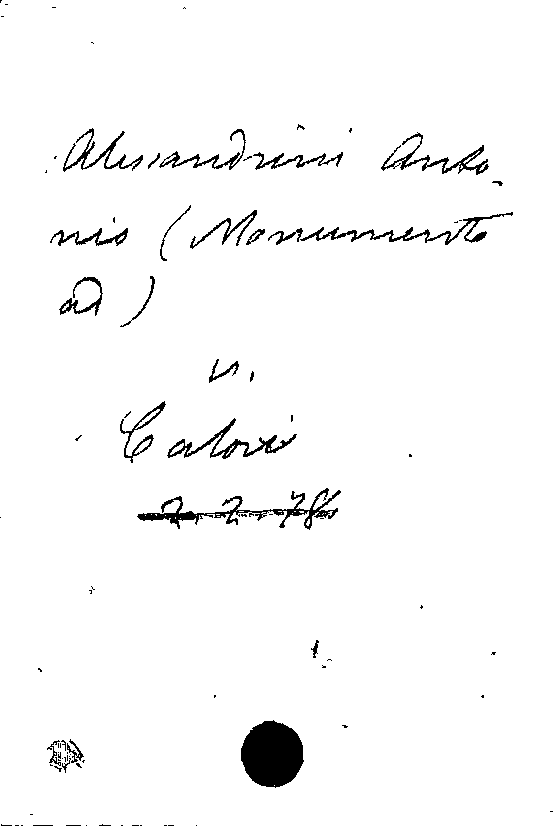 Alessandrini Anto-
nio (Monumento
ad)
v.
Calori
2. 2. 78